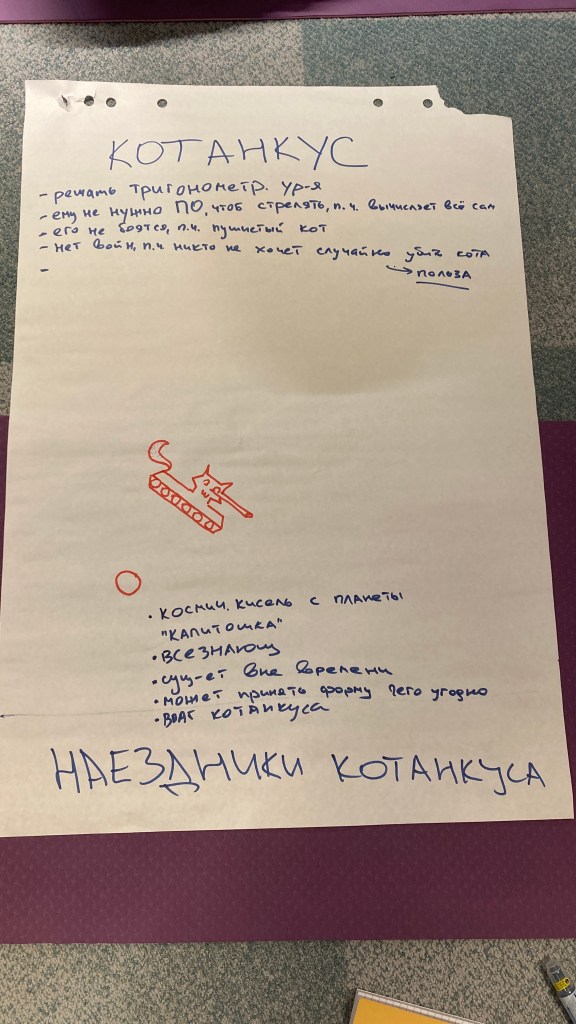 КОТАНКУС
- решать тригонометр. ур-я
- ему не нужно ПО, чтоб стрелять, п.ч. вычисляет всё сам
- его не боятся, п.ч. пушистый кот
- нет войн, п.ч. никто не хочет случайно убить кота
-
→ ПОЛЬЗА
• космич. кисель с планеты
"КАПИТОШКА"
• ВСЕЗНАЮЩ
• сущ-ет вне времени
• может принять форму чего угодно
• ВРАГ КОТАНКУСА
НАЕЗДНИКИ КОТАНКУСА